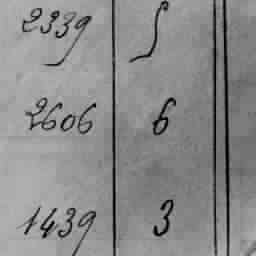 2339 5
2606 6
1439 3